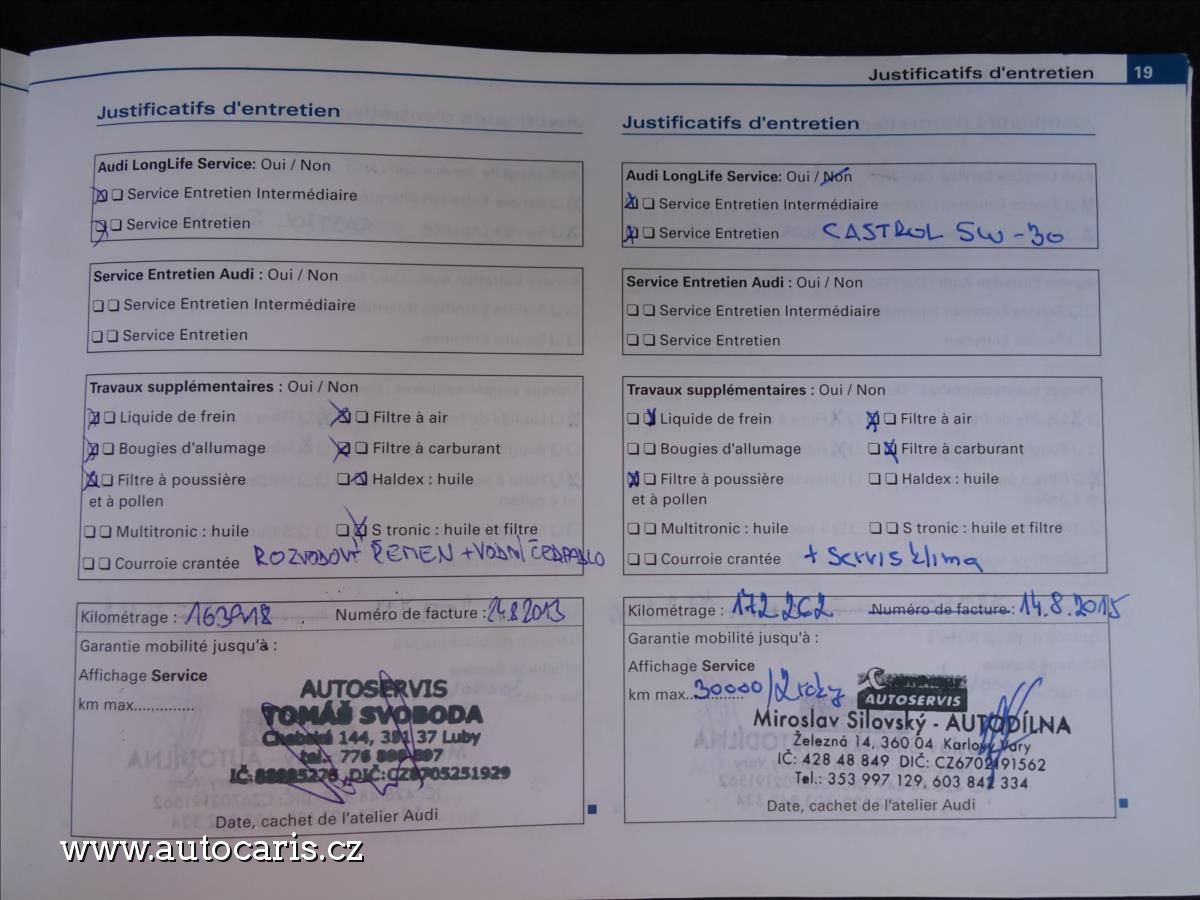 Justificatifs d'entretien 19
Justificatifs d'entretien
Audi LongLife Service: Oui / Non
Service Entretien Intermédiaire
Service Entretien
Service Entretien Audi : Oui / Non
Service Entretien Intermédiaire
Service Entretien
Travaux supplémentaires : Oui / Non
Liquide de frein Filtre à air
Bougies d'allumage Filtre à carburant
Filtre à poussière Haldex : huile
et à pollen
Multitronic : huile S tronic : huile et filtre
Courroie crantée ROZVODOVÝ ŘEMEN + VODNÍ ČERPADLO
Kilométrage : Numéro de facture :
Garantie mobilité jusqu'à :
Affichage Service
km max..............
AUTOSERVIS
TOMÁŠ SVOBODA
144, 351 37 Luby
tel.: 776
IČ: DIČ:CZ8705251929
Date, cachet de l'atelier Audi
Justificatifs d'entretien
Audi LongLife Service: Oui / Non
Service Entretien Intermédiaire
Service Entretien CASTROL 5W-30
Service Entretien Audi : Oui / Non
Service Entretien Intermédiaire
Service Entretien
Travaux supplémentaires : Oui / Non
Liquide de frein Filtre à air
Bougies d'allumage Filtre à carburant
Filtre à poussière Haldex : huile
et à pollen
Multitronic : huile S tronic : huile et filtre
Courroie crantée + servis klima
Kilométrage : 172.262 Numéro de facture : 14.8.2015
Garantie mobilité jusqu'à :
Affichage Service
km max.............. 30000/2 roky
AUTOSERVIS
Miroslav Silovský - AUTODÍLNA
Železná 14, 360 04 Karlovy Vary
IČ: 428 48 849 DIČ: CZ6702191562
Tel.: 353 997 129, 603 842 334
Date, cachet de l'atelier Audi
www.autocaris.cz